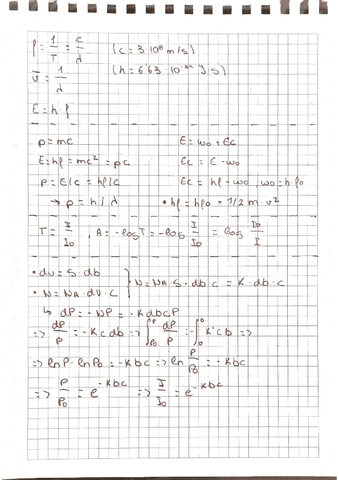 f = 1/T = c/λ (c = 3·10⁸ m/s)
ν̄ = 1/λ (h = 6'63·10⁻³⁴ J·s)
E = h·f
p = mc E = w₀ + Ec
E = hf = mc² = pc Ec = E - w₀
p = E/c = hf/c Ec = hf - w₀, w₀ = h·f₀
→ p = h/λ • hf = hf₀ + 1/2 m v²
T = I/I₀, A = -log T = -log I/I₀ = log I₀/I
• dv = S·db
• N = NA·dv·C } N = NA·S·db·c = K·db·c
↳ dP = -NP = -KdbCP
=> dP/P = -Kcdb => ∫ dP/P = -∫ K'cb =>
=> lnP - lnP₀ = -Kbc => ln P/P₀ = -Kbc
=> P/P₀ = e^-Kbc => I/I₀ = e^-Kbc